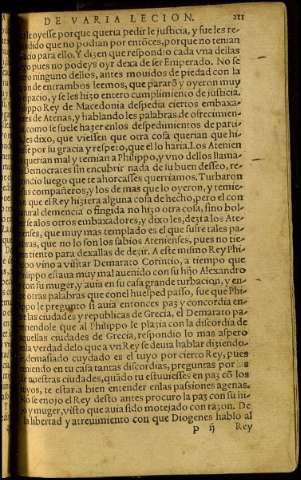 DE VARIA LECION. 211
le oyesse porque queria pedir le justicia, y fue les res-
dido que no podian por entonces, porque no tenian
cio para ello. Y dizen que respondio cada vna dellas
o pues no podeys oyr dexa de ser Emperado. No se
o ninguno dellos, antes mouidos de piedad con la
on de entrambos leemos, que pararō y oyeron muy
spacio, y se les hizo entero cumplimiento de justicia.
ippo Rey de Macedonia despedia ciertos embaxa-
es de Atenas, y hablando les palabras de ofrecimien-
como se suele hazer en los despedimientos de parti-
les dixo, que viessen que otra cosa querian que hi-
e por su gracia y respeto, que el lo haria. Los Atenien
querian mal y temian a Philippo, y vno dellos llama-
Democrates sin encubrir nada de su buen desseo, re-
ndio luego que te ahorcasses querriamos. Turbaron
us compañeros, y los de mas que lo oyeron, y temie-
que el Rey hiziera alguna cosa de hecho, pero el con
ural clemencia o fingida no hizo otra cosa, sino bol-
se a los otros embaxadores, y dixo les, dezi a los Ate-
nses, que muy mas templado es el que sufre tales pa-
ras, que no lo son los sabios Atenienses, pues no tie-
miento para dexallas de dezir. A este mismo Rey Phi-
po vino a visitar Demarato Corintio, a tiempo que
hilippo estaua muy mal auenido con su hijo Alexandro
on su muger, y auia en su casa grande turbacion, y en-
otras palabras que con el huesped passo, fue que Phi-
o le pregunto si auia entonces paz y concordia en-
las ciudades y republicas de Grecia, el Demarato pa-
iendole que al Philippo le plazia con la discordia de
uellas ciudades de Grecia, respondio lo mas aspero
na verdad de lo que a vn Rey se deuia hablar diziendo-
demasiado cuydado es el tuyo por cierto Rey, pues
niendo en tu casa tantas discordias, preguntas por las
e nuestras ciudades, que si tu estuuiesses en paz cō los
uyos, te estaria bien entender en las passiones agenas.
No se enojo el Rey desto antes procuro la paz con su hi-
o y muger, visto que auia sido motejado con razon. De
la libertad y atreuimiento con que Diogenes hablo al
P ij Rey